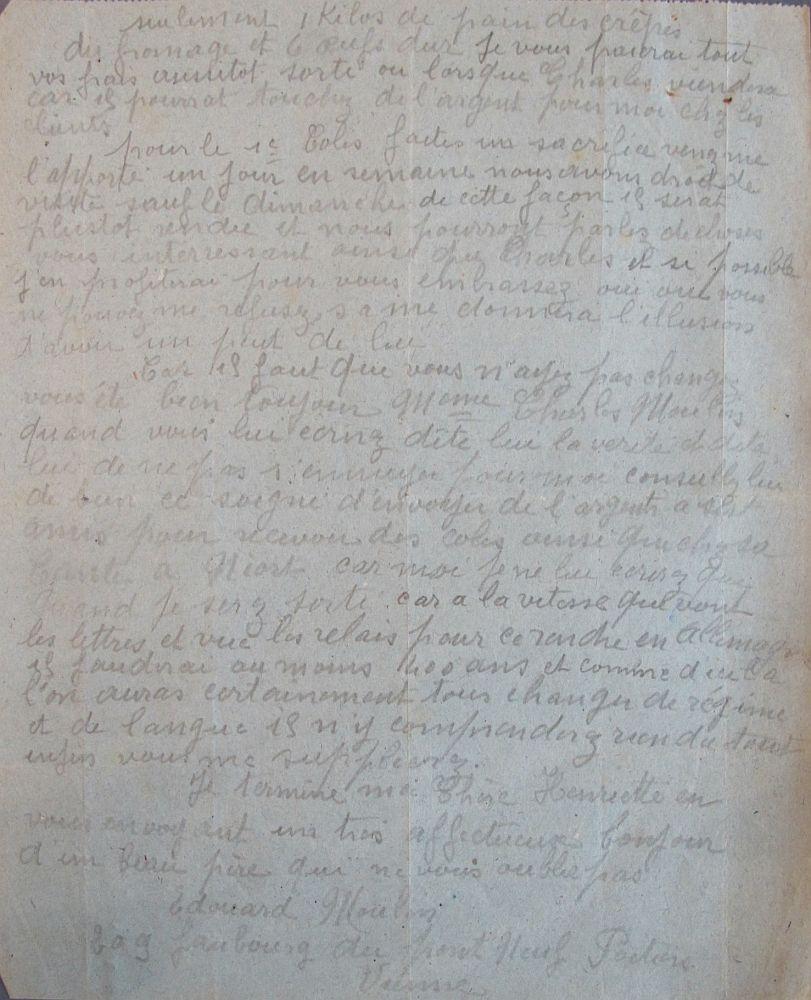 seulement 1 Kilos de pain des crêpes
du fromage et 6 œufs dur Je vous paierai tout
vos frais aussitot sorti ou lorsque Charles viendera
car il pourrat touchez de l'argent pour moi chez les
clients
pour le 1e Colis faites un sacrifice venez me
l'apporté un jour en semaine nous avons droit de
visite sauf le dimanche de cette façon il serat
plustot rendu et nous pourront parlez de choses
vous interressant ainsi que Charles et si possible
j'en profiterai pour vous embrassez oui oui vous
ne pouvez me refusez sa me donnera l'illusion
d'avoir un peut de lui
Car il faut que vous n'ayez pas changez
vous éte bien toujour Mame Charles Moulin
quand vous lui ecrirez dite lui la verité et dite
lui de ne pas s'ennuyer pour moi conseillez lui
de bien ce soigné d'envoyer de l'argent a
amis pour recevoir des colis ainsi que chez sa
tante a Niort car moi je ne lui ecrirez que
quand je serez sorti car a la vitesse que vont
les lettres et vue les relais pour ce rendre en Allemagne
il fauderai au moins 400 ans et comme d'ici la
l'on auras certainement tous changer de régime
et de langue il n'y comprenderez rien du tout
enfin vous me suppléerez.
Je termine ma Chère Henriette en
vous envoyant un tres affectueux bonjour
d'un beau père qui ne vous oublie pas
Edouard Moulin
faubourg du pont Neuf Poitiers
Vienne